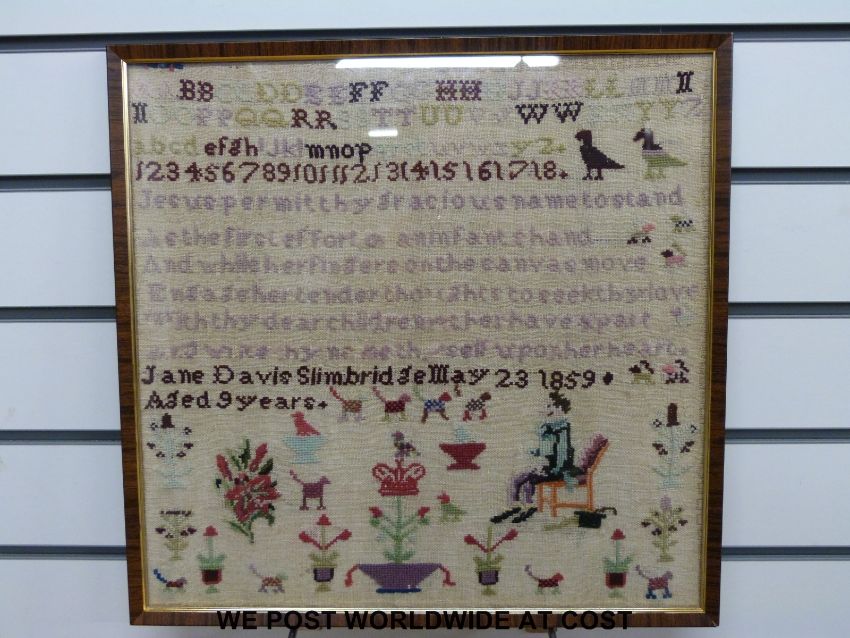 BB DD EE FF HH JJ LL II
II PP QQ RR TT UU WW YY Z
abcd efgh ijkl mnop uvwxyz.
1234567891011121314151617 18.
Jesus permit thy gracious name to stand
As the first effort of an infants hand
And while her fingers on the canvas move
Engage her tender thoughts to seek thy love
With thy dear children let her have a part
And write thy name thyself upon her heart.
Jane Davis Slimbridge May 23 1859
Aged 9 years.
WE POST WORLDWIDE AT COST